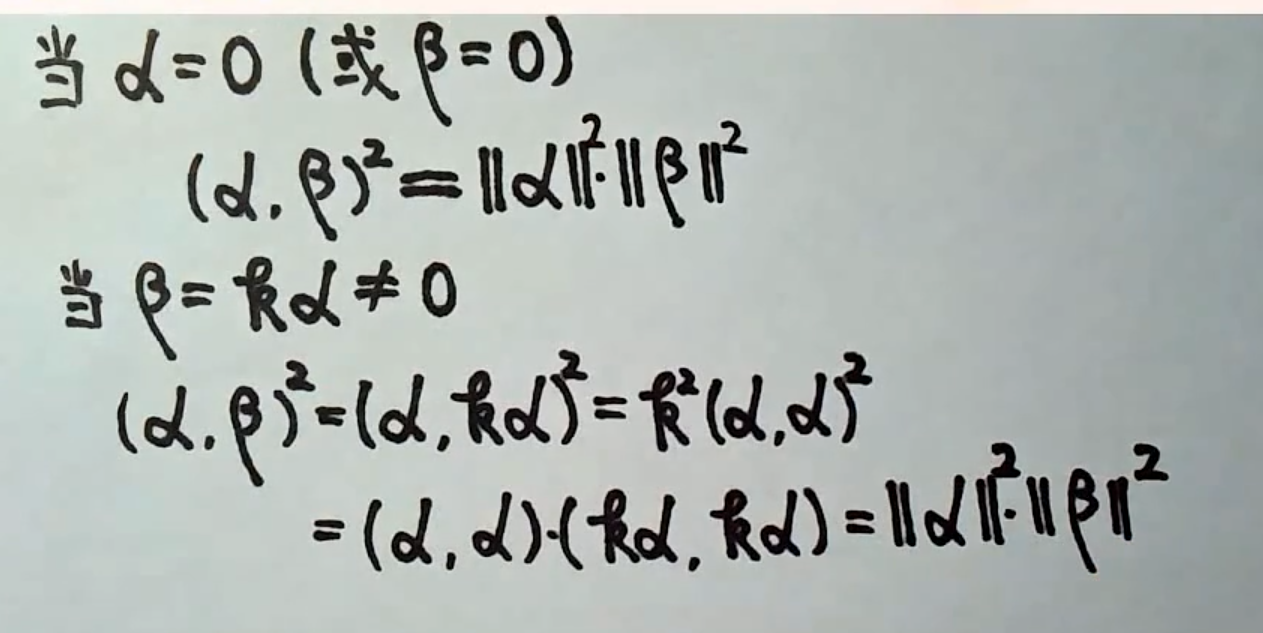 当 α=0 (或 β=0)
(α,β)²=‖α‖²·‖β‖²
当 β=kα≠0
(α,β)²=(α,kα)²=k²(α,α)²
=(α,α)·(kα,kα)=‖α‖²·‖β‖²